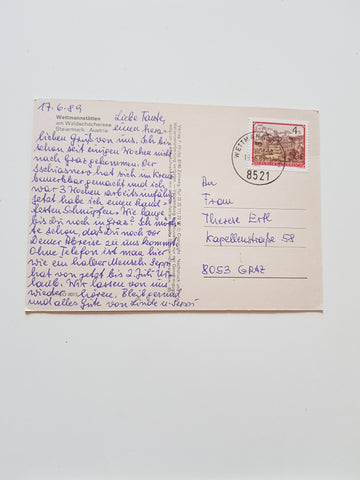 17.6.89
Wettmannstätten
am Waldschachersee
Steiermark Austria
Liebe Tante,
einen herz-
lichen Gruß von uns. Ich bin
schon seit einigen Wochen nicht
nach Graz gekommen. Der
hat sich im Kreuz
bemerkbar gemacht und ich
war 3 Wochen arbeitsunfähig
jetzt habe ich einen
festen Schnupfen. Wie lange
bist du noch in Graz? Ich möch-
te schon, daß Du noch vor
Deiner Abreise zu uns kommst.
Ohne Telefon ist man hier
wie ein halber Mensch. Seppi
hat von jetzt bis 2. Juli Ur-
laub. Wir lassen von uns
wieder hören. Bleib gesund
und alles Gute von Linde u. Seppi
4 S
WETTMANN
8521
An
Frau
Therese Ertl
Kapellenstraße 58
8053 GRAZ